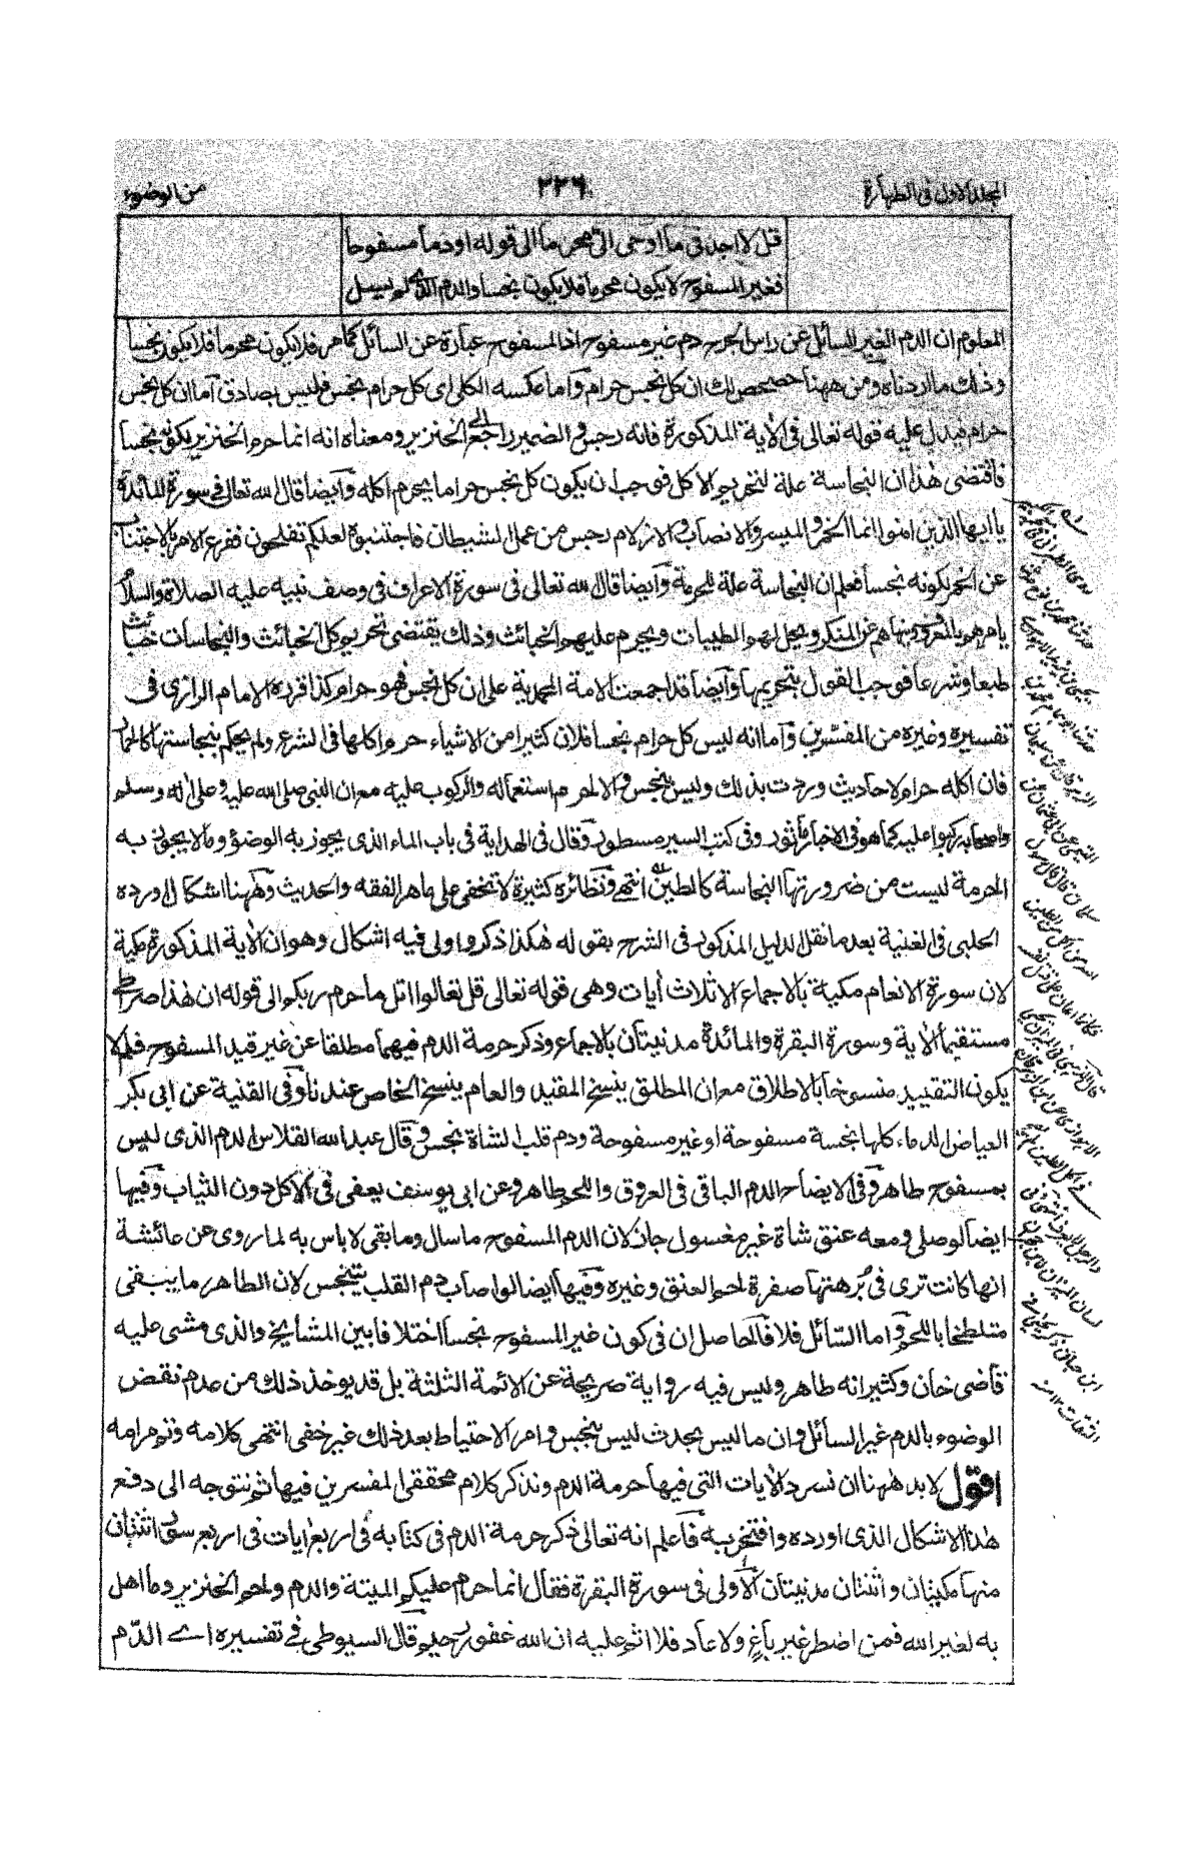 المجلد الاول فى الطهارة
٢٣٦
من الوضوء
قل لا اجد فى ما اوحى الى محرما الى قوله او دما مسفوحا
فغير المسفوح لا يكون محرما فلا يكون نجسا والدم الذى لم يسل
المعلوم ان الدم الغير السائل عن راس الجرح دم غير مسفوح اذ المسفوح عبارة عن السائل كما مر فلا يكون محرما فلا يكون نجسا
وذلك ما اردناه ومن ههنا حصحص لك ان كل نجس حرام واما عكسه الكلى اى كل حرام نجس فليس بصادق اما ان كل نجس
حرام فيدل عليه قوله تعالى فى الاية المذكورة فانه رجس والضمير راجع الى الخنزير ومعناه انه انما حرم الخنزير لكونه نجسا
فاقتضى هذا ان النجاسة علة لتحريم الاكل فوجب ان يكون كل نجس حراما يحرم اكله وايضا قال الله تعالى فى سورة المائدة
يا ايها الذين امنوا انما الخمر والميسر والانصاب والازلام رجس من عمل الشيطان فاجتنبوه لعلكم تفلحون ففرع الامر بالاجتناب
عن الخمر لكونه نجسا فعلم ان النجاسة علة للحرمة وايضا قال الله تعالى فى سورة الاعراف فى وصف نبيه عليه الصلاة والسلام
يامرهم بالمعروف وينهاهم عن المنكر ويحل لهم الطيبات ويحرم عليهم الخبائث وذلك يقتضى تحريم كل الخبائث والنجاسات خبائث
طبعا وشرعا فوجب القول بتحريمها وايضا قد اجمعت الامة المحمدية على ان كل نجس فهو حرام كذا قرره الامام الرازى فى
تفسيره وغيره من المفسرين واما انه ليس كل حرام نجسا فلان كثيرا من الاشياء حرم اكلها فى الشرع ولم يحكم بنجاستها كالحمار
فان اكله حرام لاحاديث وردت بذلك وليس بنجس والا لحرم استعماله والركوب عليه مع ان النبى صلى الله عليه وعلى اله وسلم
واصحابه ركبوا عليه كما هو فى الاخبار ماثور وفى كتب السير مسطور وقال فى الهداية فى باب الماء الذى يجوز به الوضوء وما لا يجوز به
الحرمة ليست من ضرورتها النجاسة كالطين انتهى ونظائره كثيرة لا تخفى على ماهر الفقه والحديث وههنا اشكال اورده
الحلبى فى الغنية بعد ما نقل الدليل المذكور فى الشرح بقوله هكذا ذكروا ولى فيه اشكال وهو ان الاية المذكورة مكية
لان سورة الانعام مكية بالاجماع الا ثلاث ايات وهى قوله تعالى قل تعالوا اتل ما حرم ربكم الى قوله ان هذا صراطى
مستقيما الاية وسورة البقرة والمائدة مدنيتان بالاجماع وذكر حرمة الدم فيهما مطلقا عن غير قيد المسفوح فلم لا
يكون التقييد منسوخا بالاطلاق مع ان المطلق ينسخ المقيد والعام ينسخ الخاص عندنا وفى القنية عن ابى بكر
العياضى الدماء كلها نجسة مسفوحة او غير مسفوحة ودم قلب الشاة نجس وقال عبد الله القلاس الدم الذى ليس
بمسفوح طاهر وفى الايضاح الدم الباقى فى العروق واللحم طاهر وعن ابى يوسف يعفى فى الاكل دون الثياب وفيها
ايضا لو صلى ومعه عنق شاة غير مغسول جاز لان الدم المسفوح ما سال وما بقى لا باس به لما روى عن عائشة
انها كانت ترى فى برمتها صفرة لحم العنق وغيره وفيها ايضا لو اصاب دم القلب يتنجس لان الطاهر ما يبقى
متلطخا باللحم واما السائل فلا فالحاصل ان فى كون غير المسفوح نجسا اختلافا بين المشايخ والذى مشى عليه
قاضى خان وكثير انه طاهر وليس فيه رواية صريحة عن الائمة الثلثة بل قد يوخذ ذلك من عدم نقض
الوضوء بالدم غير السائل وان ما ليس بحدث ليس بنجس وامر الاحتياط بعد ذلك غير خفى انتهى كلامه وتم مرامه
اقول لا بد ههنا ان نسرد الايات التى فيها حرمة الدم ونذكر كلام محققى المفسرين فيها ثم نتوجه الى دفع
هذا الاشكال الذى اورده وافتخر به فاعلم انه تعالى ذكر حرمة الدم فى كتابه فى اربع ايات فى اربع سور اثنتان
منها مكيتان واثنتان مدنيتان الاولى فى سورة البقرة فقال انما حرم عليكم الميتة والدم ولحم الخنزير وما اهل
به لغير الله فمن اضطر غير باغ ولا عاد فلا اثم عليه ان الله غفور رحيم قال السيوطى فى تفسيره اے الدم